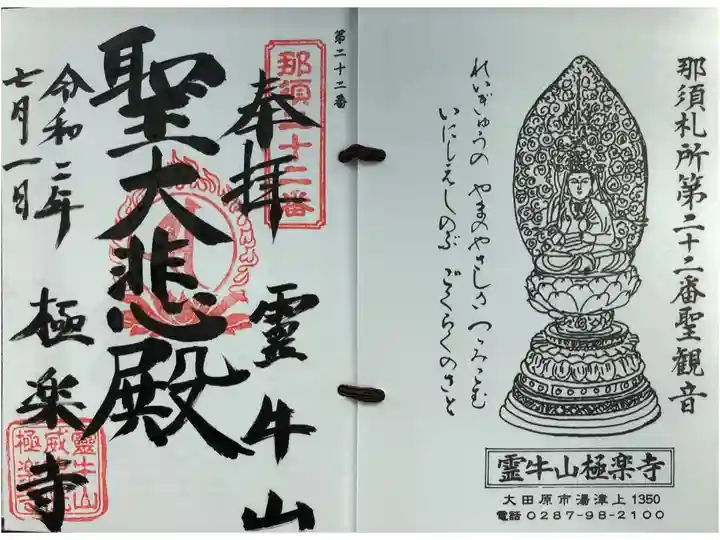 那須札所第二十二番聖観音
れいぎゅうの やまのやさしき つゝみこむ
いにしえしのぶ ごくらくのさと
霊牛山極楽寺
大田原市湯津上1350
電話 0287-98-2100
第二十二番
那須二十二番
奉拝 霊牛山
聖大悲殿
令和二年
七月一日
極楽寺